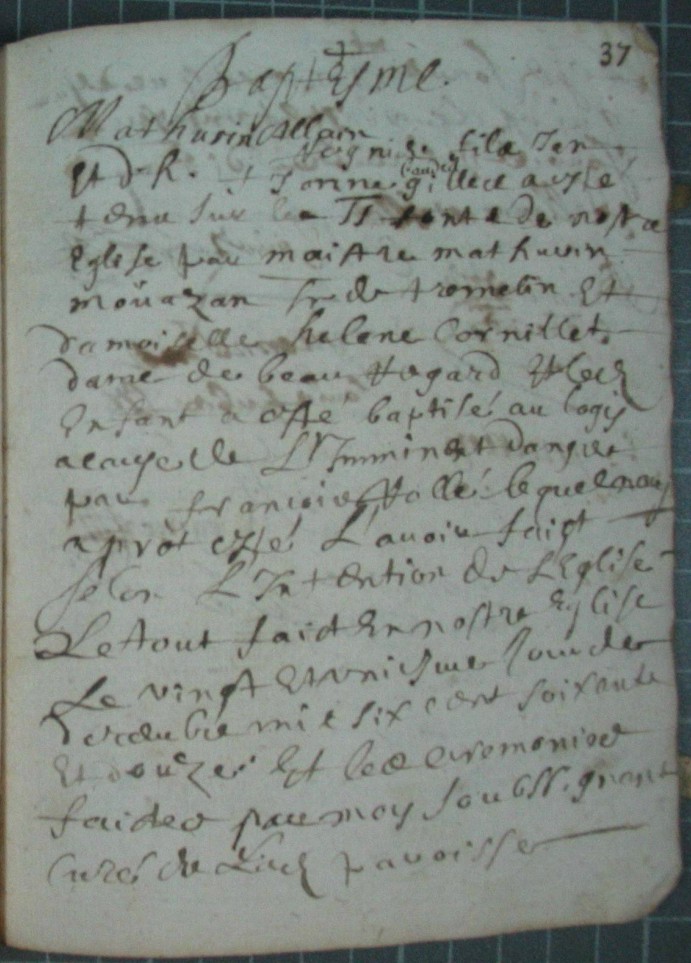 37
Baptesme.
Mathurin Allain
fils Jan
Et d h. f Janne gillet a esté
tenu sur les fonts de nostre
Eglise par maistre mathurin
moüazan sr de tromelin Et
damoiselle helene Cornillet
dame de beau regard Et led
Enfant a esté baptisé au logis
a cause de L'Imminent danger
par francois lequel nous
a esté L'avoir faict
selon L'Intention de L'Eglise
Le tout faict En nostre Eglise
Le vingt Et uniesme Jour de
mil six cent soixante
Et douze Et les ceremonies
faictes par moy soubss.gnant
Curé de Lad paroisse